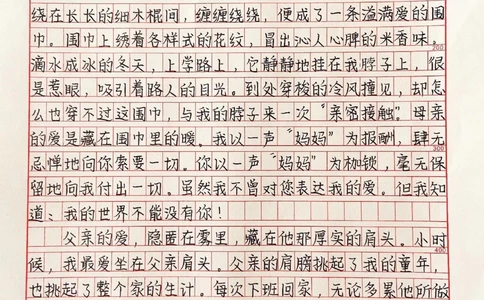 绕在长长的细木棍间，缠缠绕绕，便成了一条溢满爱的围
巾。围巾上绣着各样式的花纹，冒出沁人心脾的米香味。
200
滴水成冰的冬天，上学路上，它静静地挂在我脖子上，很
是惹眼，吸引着路人的目光。到处穿梭的冷风撞见，却怎
么也穿不过这围巾，与我的脖子来一次“亲密接触”。母亲
的爱是藏在围巾里的暖。我以一声“妈妈”为报酬，肆无
300
忌惮地向你索要一切。你以一声“妈妈”为枷锁，毫无保
留地向我付出一切。虽然我不曾对您表达我的爱。但我知
道：我的世界不能没有你！
父亲的爱，隐匿在雾里，藏在他那厚实的肩头。小时
400
候，我最爱坐在父亲肩头。父亲的肩膀挑起了我的童年，
也挑起了整个家的生计。每次下班回家，无论多累他所做